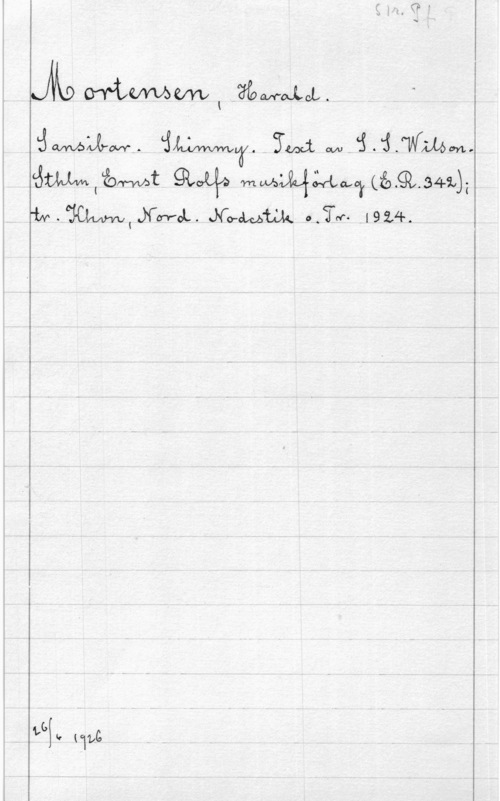 Mortensen, Harald.
Sansibar. Shimmy. Text av S.S. Wilson.
Sthlm, Ernst Rolfs musikförlag (E.R.342);
tr. Khvn, Nord. Nodestik o. Tr. 1924.
26/4 1926